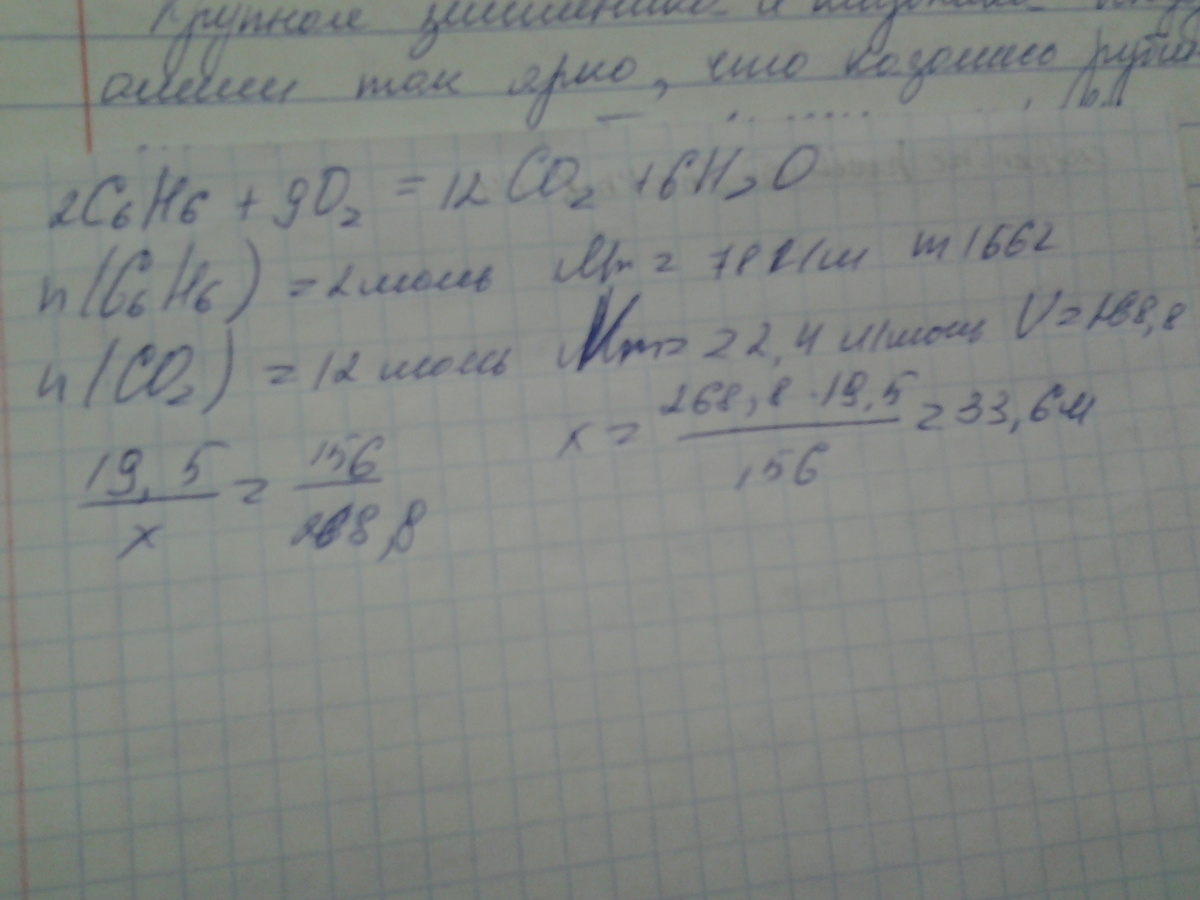 Крупное
так ярко, что казалось
2C₆H₆ + 9O₂ = 12CO₂ + 6H₂O
n(C₆H₆) = 2 моль Mr = 78 г/м m 156г
n(CO₂) = 12 моль Vm = 22,4 л/моль V = 268,8
19,5/x = 156/268,8 x = 268,8 · 19,5/156 = 33,6 л